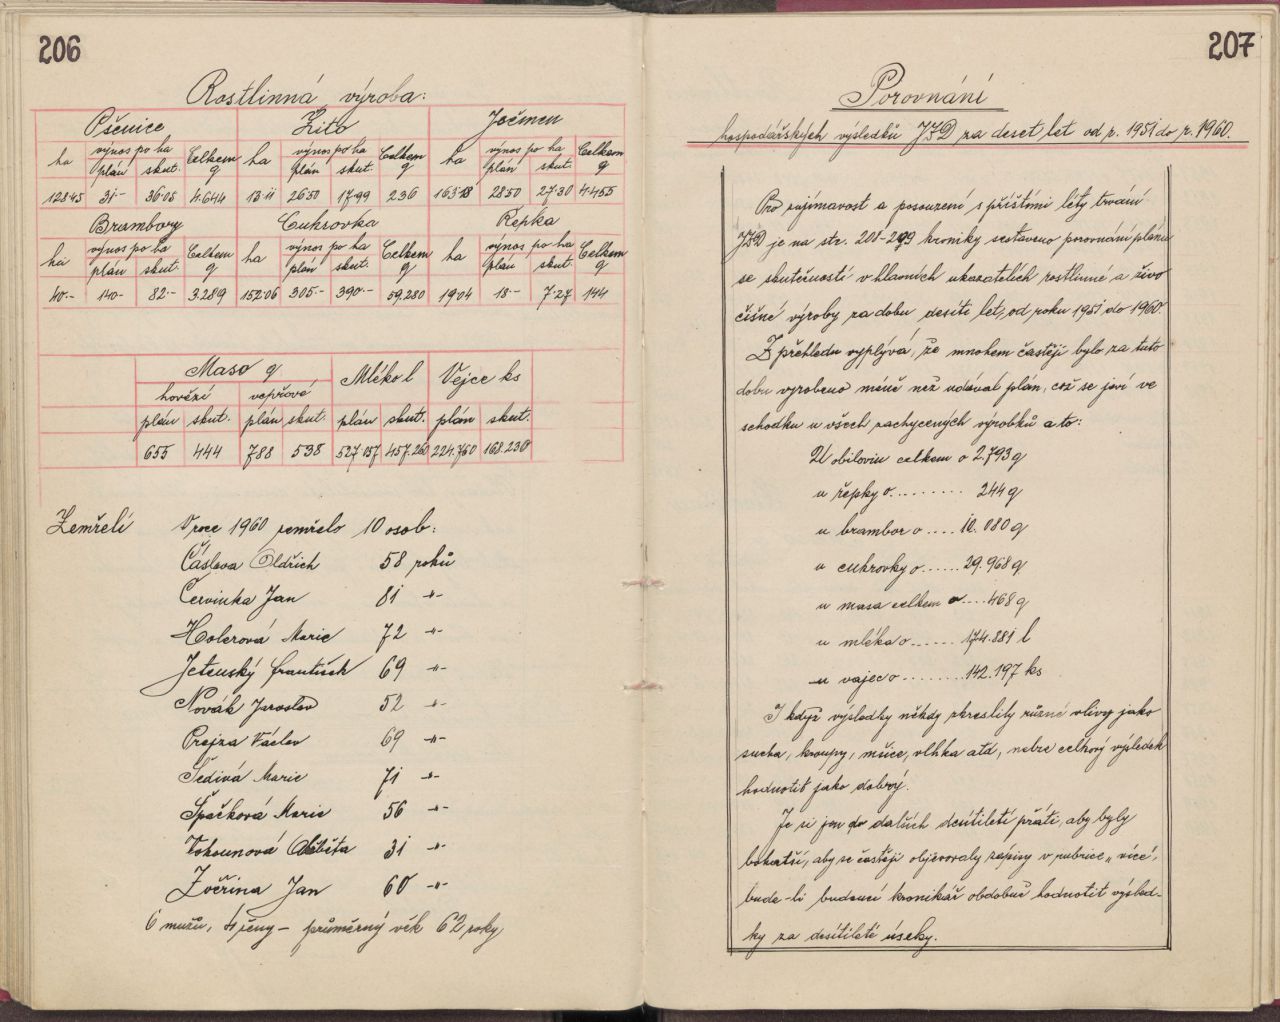 206
Rostlinná výroba:
Pšenice Žito Ječmen
ha výnos po ha Celkem q ha výnos po ha Celkem q ha výnos po ha Celkem q
plán skut. plán skut. plán skut.
128·45 31·- 36·05 4.644 13·11 26·50 17·99 236 163·18 28·50 27·30 4.455
Brambory Cukrovka Řepka
ha výnos po ha Celkem q ha výnos po ha Celkem q ha výnos po ha Celkem q
plán skut. plán skut. plán skut.
40·- 140·- 82·- 3.289 152·06 305·- 390·- 59.280 19·04 18·- 7·27 144
Maso q. Mléko l Vejce ks
hovězí vepřové
plán skut. plán skut. plán skut. plán skut.
655 444 788 598 527.157 457.260 224.760 168.230
Zemřelí V roce 1960 zemřelo 10 osob:
Čáslava Oldřich 58 roků
Červinka Jan 81 -"-
Holerová Marie 72 -"-
Jetenský František 69 -"-
Novák Jaroslav 52 -"-
Prejza Václav 69 -"-
Šedivá Marie 71 -"-
Špačková Marie 56 -"-
Vokounová Alžběta 31 -"-
Zvěřina Jan 60 -"-
6 mužů, 4 ženy – průměrný věk 62 roky
207
Porovnání
hospodářských výsledků JZD za deset let od r. 1951 do r. 1960.
Pro zajímavost a posouzení s příštími léty trvání
JZD je na str. 208-209 kroniky sestaveno porovnání plánu
se skutečností v hlavních ukazatelích rostlinné a živo
čišné výroby za dobu desíti let, od roku 1951 do 1960.
Z přehledu vyplývá, že mnohem častěji bylo za tuto
dobu vyrobeno méně než udával plán, což se jeví ve
schodku u všech zachycených výrobků a to:
U obilovin celkem o 2.793 q
u řepky o......... 244 q
u brambor o .... 10.080 q
u cukrovky o...... 29.968 q
u masa celkem o .... 468 q
u mléka o ....... 174.881 l
u vajec o ........ 142.197 ks
I když výsledky někdy zkreslily různé vlivy jako
sucha, kroupy, mšice, vlhka atd, nelze celkový výsledek
hodnotit jako dobrý.
Je si jen do dalších desítiletí přáti, aby byly
bohatší, aby se častěji objevovaly zápisy v rubrice „více",
bude-li budoucí kronikář obdobně hodnotit výsled-
ky za desítileté úseky.